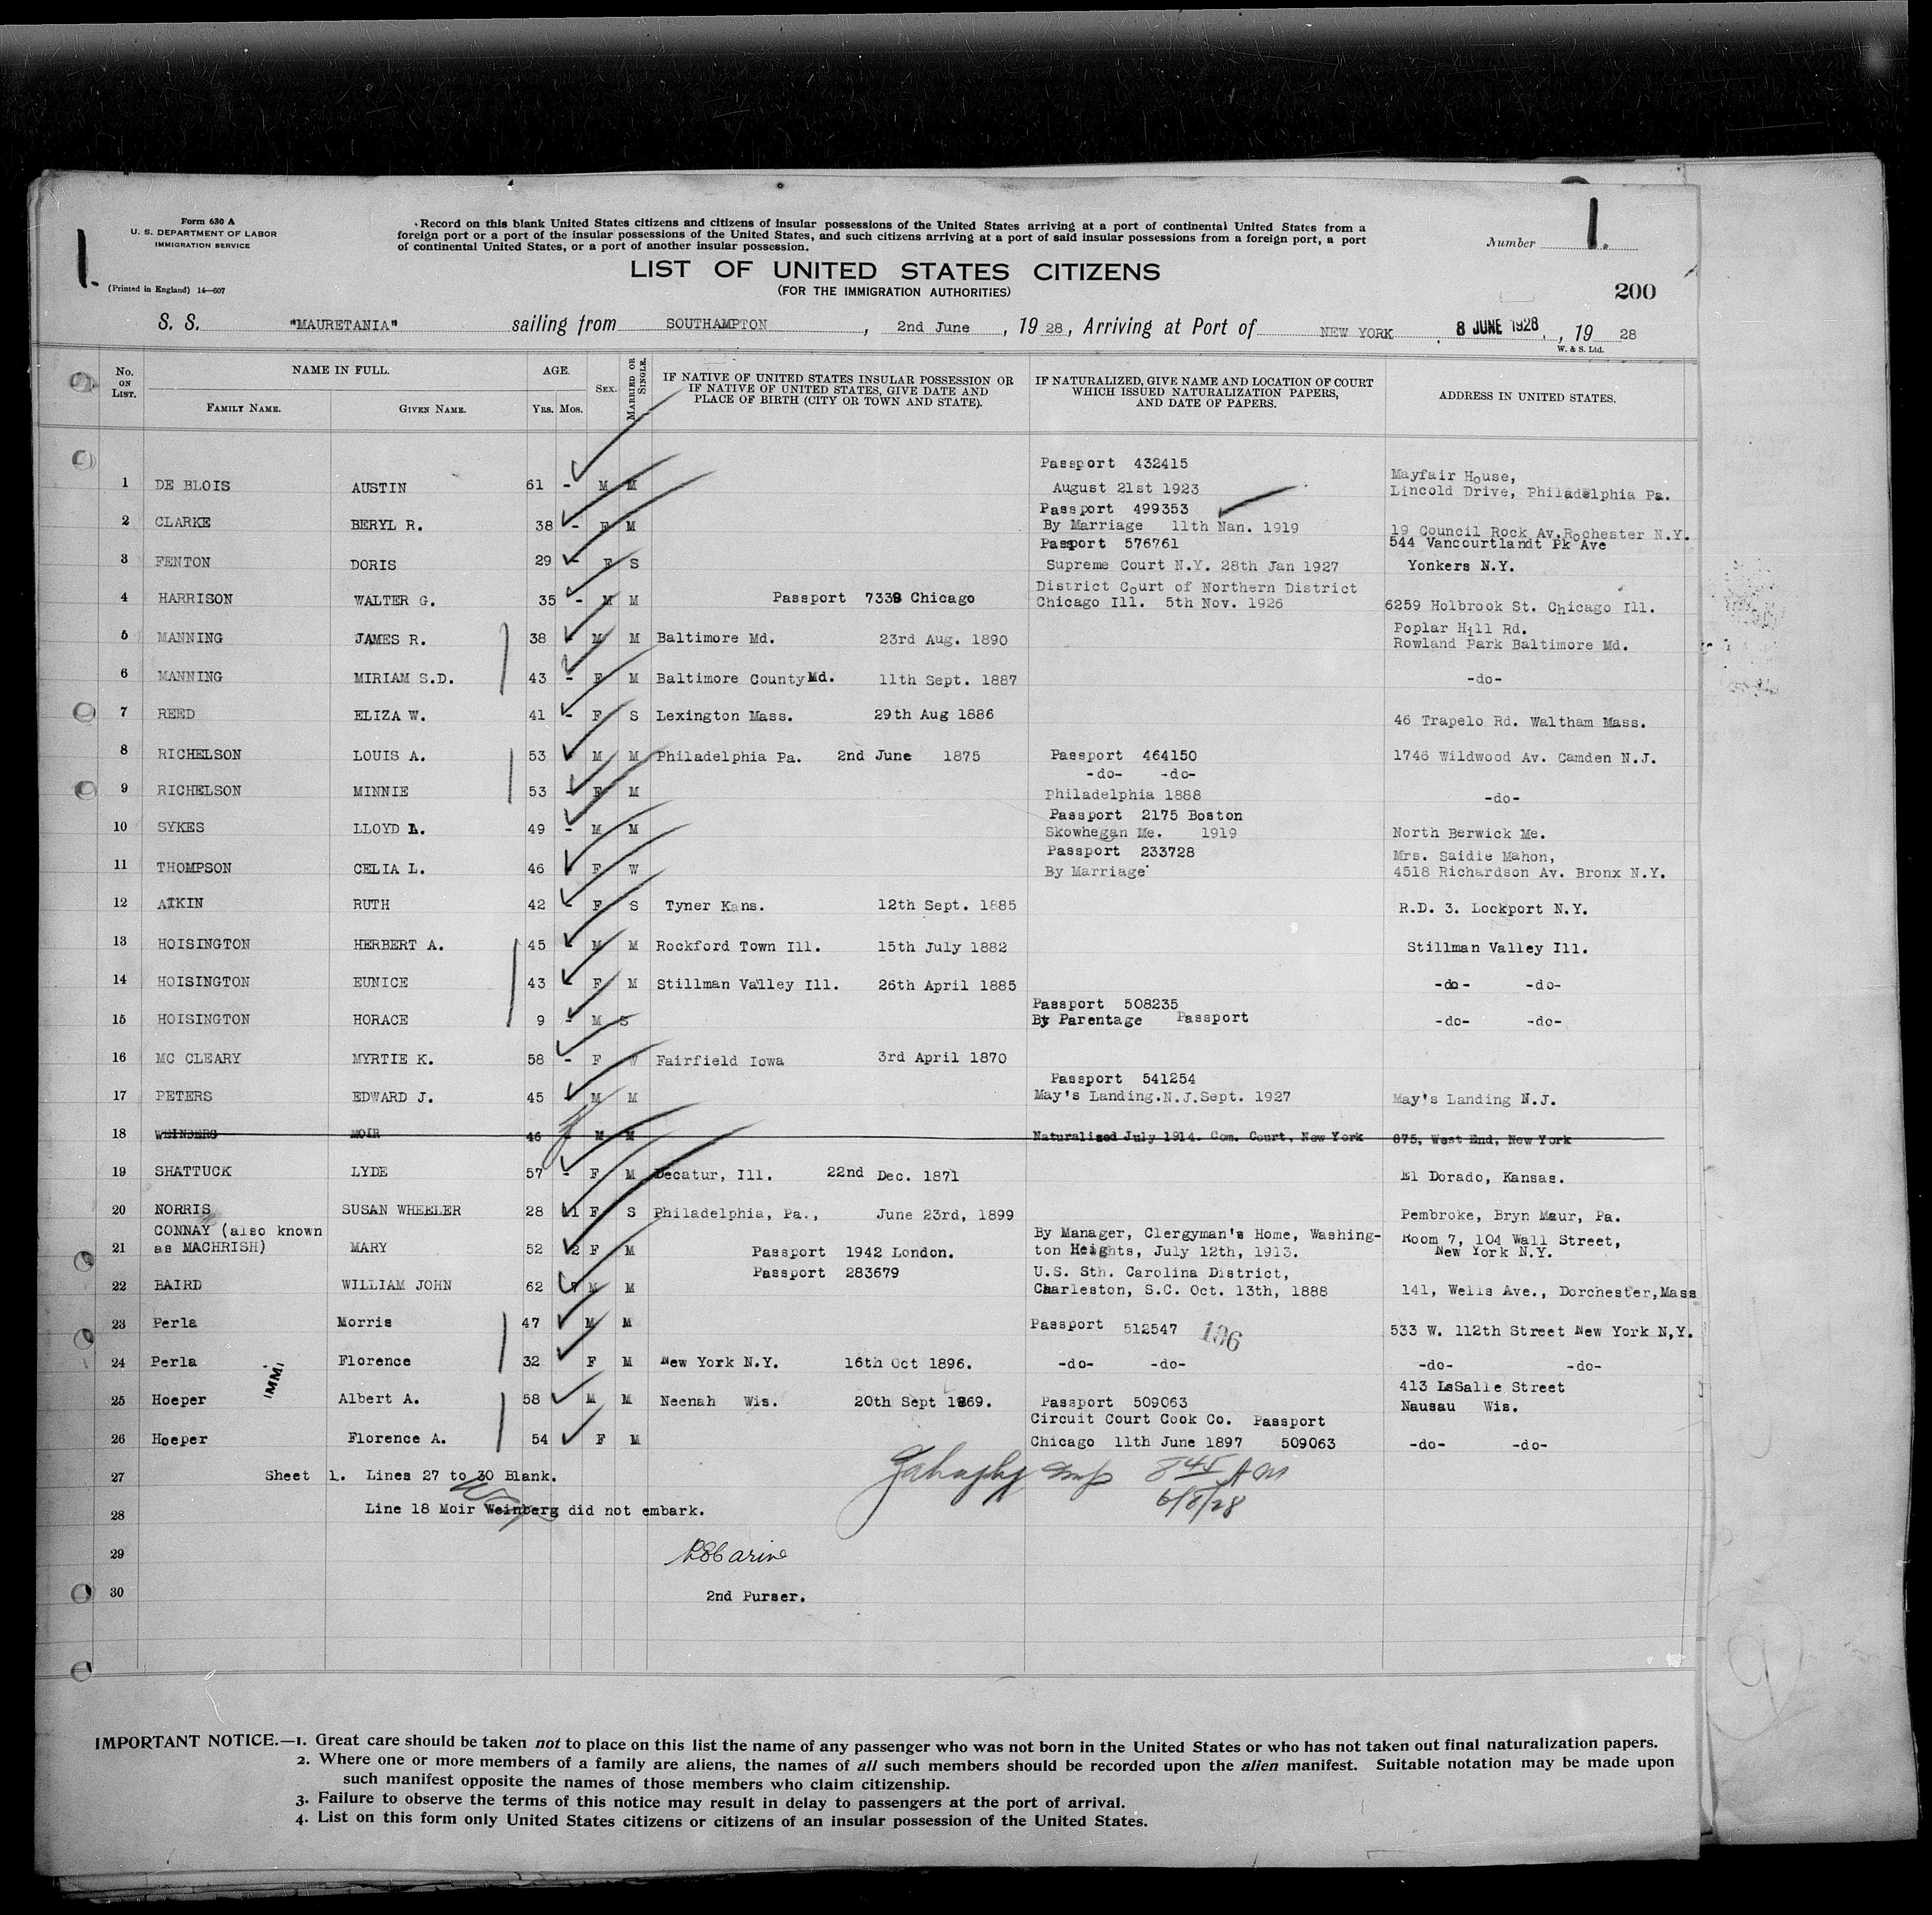 Form 630 A
U. S. DEPARTMENT OF LABOR
IMMIGRATION SERVICE
1.
(Printed in England) 14—607
Record on this blank United States citizens and citizens of insular possessions of the United States arriving at a port of continental United States from a
foreign port or a port of the insular possessions of the United States, and such citizens arriving at a port of said insular possessions from a foreign port, a port
of continental United States, or a port of another insular possession.
Number 1.
LIST OF UNITED STATES CITIZENS
(FOR THE IMMIGRATION AUTHORITIES)
200
S. S. "MAURETANIA" sailing from SOUTHAMPTON, 2nd June, 19 28, Arriving at Port of NEW YORK 8 JUNE 1928, 19 28
W. & S. Ltd.
No. ON LIST. NAME IN FULL. AGE. SEX. MARRIED OR SINGLE. IF NATIVE OF UNITED STATES INSULAR POSSESSION OR IF NATIVE OF UNITED STATES, GIVE DATE AND PLACE OF BIRTH (CITY OR TOWN AND STATE). IF NATURALIZED, GIVE NAME AND LOCATION OF COURT WHICH ISSUED NATURALIZATION PAPERS, AND DATE OF PAPERS. ADDRESS IN UNITED STATES.
FAMILY NAME. GIVEN NAME. Yrs. Mos.
Passport 432415
1 DE BLOIS AUSTIN 61 - M M August 21st 1923 Mayfair House,
Lincold Drive, Philadelphia Pa.
Passport 499353
2 CLARKE BERYL R. 38 - F M By Marriage 11th Nan. 1919 19 Council Rock Av.Rochester N.Y.
Passport 576761 544 Vancourtlandt Pk Ave
3 FENTON DORIS 29 - F S Supreme Court N.Y. 28th Jan 1927 Yonkers N.Y.
District Court of Northern District
4 HARRISON WALTER G. 35 - M M Passport 7339 Chicago Chicago Ill. 5th Nov. 1926 6259 Holbrook St. Chicago Ill.
Poplar Hill Rd.
5 MANNING JAMES R. 38 - M M Baltimore Md. 23rd Aug. 1890 Rowland Park Baltimore Md.
6 MANNING MIRIAM S.D. 43 - F M Baltimore County Md. 11th Sept. 1887 -do-
7 REED ELIZA W. 41 - F S Lexington Mass. 29th Aug 1886 46 Trapelo Rd. Waltham Mass.
8 RICHELSON LOUIS A. 53 - M M Philadelphia Pa. 2nd June 1875 Passport 464150 1746 Wildwood Av. Camden N.J.
-do- -do-
9 RICHELSON MINNIE 53 - F M Philadelphia 1888 -do-
Passport 2175 Boston
10 SYKES LLOYD L. 49 - M M Skowhegan Me. 1919 North Berwick Me.
Passport 233728 Mrs. Saidie Mahon,
11 THOMPSON CELIA L. 46 - F W By Marriage 4518 Richardson Av. Bronx N.Y.
12 AIKIN RUTH 42 - F S Tyner Kans. 12th Sept. 1885 R.D. 3. Lockport N.Y.
13 HOISINGTON HERBERT A. 45 - M M Rockford Town Ill. 15th July 1882 Stillman Valley Ill.
14 HOISINGTON EUNICE 43 - F M Stillman Valley Ill. 26th April 1885 -do- -do-
Passport 508235
15 HOISINGTON HORACE 9 - M S By Parentage Passport -do- -do-
16 MC CLEARY MYRTIE K. 58 - F W Fairfield Iowa 3rd April 1870
Passport 541254
17 PETERS EDWARD J. 45 M M May's Landing.N.J.Sept. 1927 May's Landing N.J.
18 WEINBERG MOIR 46 - M M Naturalized July 1914. Com. Court, New York 875, West End, New York
19 SHATTUCK LYDE 57 - F M Decatur, Ill. 22nd Dec. 1871 El Dorado, Kansas.
20 NORRIS SUSAN WHEELER 28 11 F S Philadelphia, Pa., June 23rd, 1899 Pembroke, Bryn Maur, Pa.
CONNAY (also known By Manager, Clergyman's Home, Washing- Room 7, 104 Wall Street,
21 as MACHRISH) MARY 52 2 F M Passport 1942 London. ton Heights, July 12th, 1913. New York N.Y.
Passport 283679 U.S. Sth. Carolina District,
22 BAIRD WILLIAM JOHN 62 7 M M Charleston, S.C. Oct. 13th, 1888 141, Wells Ave., Dorchester,Mass
23 Perla Morris 47 M M Passport 512547 106 533 W. 112th Street New York N,Y.
24 Perla Florence 32 F M New York N.Y. 16th Oct 1896. -do- -do- -do- -do-
IMMI
413 LaSalle Street
25 Hoeper Albert A. 58 M M Neenah Wis. 20th Sept 1869. Passport 509063 Nausau Wis.
Circuit Court Cook Co. Passport
26 Hoeper Florence A. 54 F M Chicago 11th June 1897 509063 -do- -do-
27 Sheet 1. Lines 27 to 30 Blank. 8 45 AM
28 Line 18 Moir Weinberg did not embark. 6/8/28
29
30 2nd Purser.
IMPORTANT NOTICE.—1. Great care should be taken not to place on this list the name of any passenger who was not born in the United States or who has not taken out final naturalization papers.
2. Where one or more members of a family are aliens, the names of all such members should be recorded upon the alien manifest. Suitable notation may be made upon
such manifest opposite the names of those members who claim citizenship.
3. Failure to observe the terms of this notice may result in delay to passengers at the port of arrival.
4. List on this form only United States citizens or citizens of an insular possession of the United States.